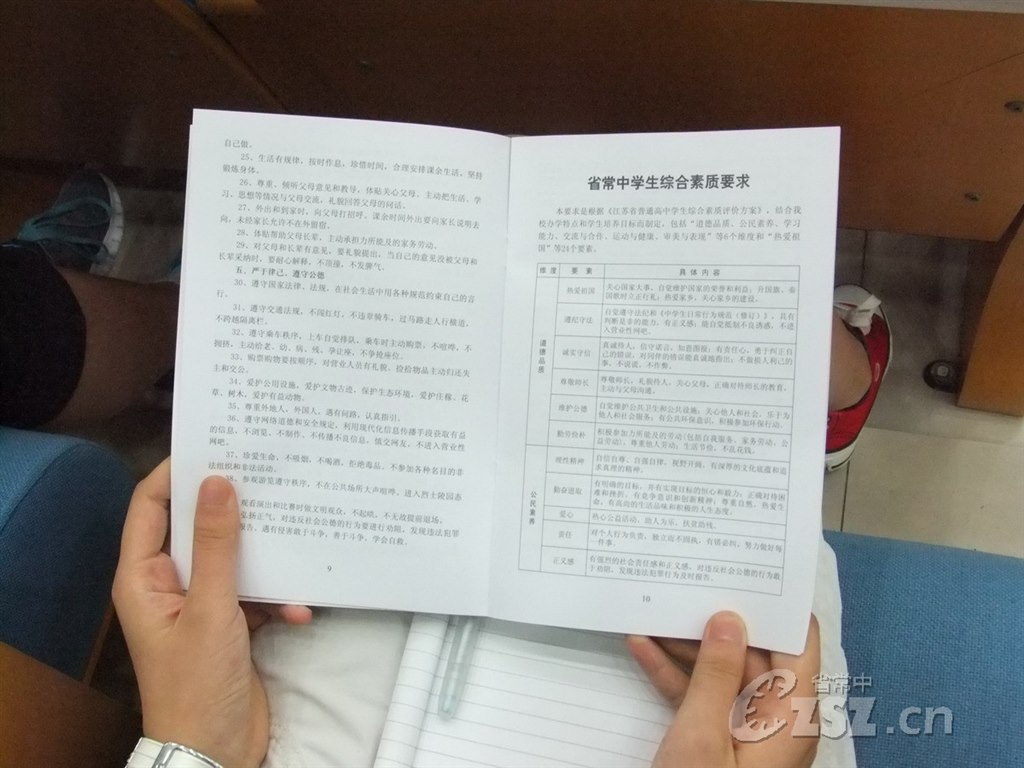 自己做。
25、生活有规律，按时作息，珍惜时间，合理安排课余生活，坚持
锻炼身体。
26、尊重、倾听父母意见和教导，体贴关心父母，主动把生活、学
习、思想等情况与父母交流，礼貌回答父母的问话。
27、外出和到家时，向父母打招呼，课余时间外出要向家长说明去
向，未经家长允许不在外留宿。
28、体贴帮助父母长辈，主动承担力所能及的家务劳动。
29、对父母和长辈有意见，要礼貌提出，当自己的意见没被父母和
长辈采纳时，要耐心解释，不顶撞，不发脾气。
五、严于律己，遵守公德
30、遵守国家法律、法规，在社会生活中用各种规范约束自己的言
行。
31、遵守交通法规，不闯红灯，不违章骑车，过马路走人行横道，
不跨越隔离栏。
32、遵守乘车秩序，上车自觉排队，乘车时主动购票，不喧哗、不
拥挤，主动给老、幼、病、残、孕让座，不争抢座位。
33、购票购物要按顺序，对营业人员有礼貌。捡拾物品主动归还失
主和交公。
34、爱护公用设施、爱护文物古迹，保护生态环境，爱护庄稼、花
草、树木，爱护有益动物。
35、尊重外地人、外国人，遇有问路，认真指引。
36、遵守网络道德和安全规定，利用现代化信息传播手段获取有益
的信息，不浏览、不制作、不传播不良信息，慎交网友，不进入营业性
网吧。
37、珍爱生命，不吸烟，不喝酒，拒绝毒品。不参加各种名目的非
法组织和非法活动。
38、参观游览遵守秩序，不在公共场所大声喧哗，进入烈士陵园态
观看演出和比赛时做文明观众，不起哄，不无故提前退场。
弘扬正气，对违反社会公德的行为要进行劝阻，发现违法犯罪
报告。遇有侵害敢于斗争，善于斗争，学会自救。
9
省常中学生综合素质要求
本要求是根据《江苏省普通高中学生综合素质评价方案》，结合我
校办学特点和学生培养目标而制定，包括“道德品质、公民素养、学习
能力、交流与合作、运动与健康、审美与表现”等6个维度和“热爱祖
国”等24个要素。
维度 要素 具体内容
道德品质
热爱祖国 关心国家大事，自觉维护国家的荣誉和利益；升国旗、奏
国歌时立正行礼；热爱家乡，关心家乡的建设。
遵纪守法 自觉遵守法纪和《中学生日常行为规范（修订）》，具有
判断是非的能力，有正义感；能自觉抵制不良诱惑，不进
入营业性网吧。
诚实守信 真诚待人，信守诺言，知恩图报；有责任心，勇于纠正自
己的错误，对同伴的错误能真诚地指出；不做损人利己的
事，不说谎、不作弊。
尊敬师长 尊敬师长，礼貌待人，关心父母，正确对待师长的教育，
主动与父母沟通。
维护公德 自觉维护公共卫生和公共设施；关心他人和社会，乐于为
他人和社会服务；有公共环保意识，积极参加环保行动。
勤劳俭朴 积极参加力所能及的劳动(包括自我服务、家务劳动、公
益劳动)，尊重他人劳动；生活节俭，不乱花钱。
公民素养
理性精神 自信自尊，自强自律，视野开阔，有深厚的文化底蕴和追
求真理的精神。
勤奋进取 有明确的目标，并有实现目标的恒心和毅力；正确对待困
难和挫折，有竞争意识和创新精神；尊重自然，热爱生
命，有高尚的生活品味和积极的人生态度。
爱心 热心公益活动，助人为乐，扶贫助残。
责任 对个人行为负责，独立而不固执，有错必纠，努力做好每
一件事。
正义感 有强烈的社会责任感和正义感，对违反社会公德的行为敢
于劝阻，发现违法犯罪行为及时报告。
10
省常中
CZSZ.cn